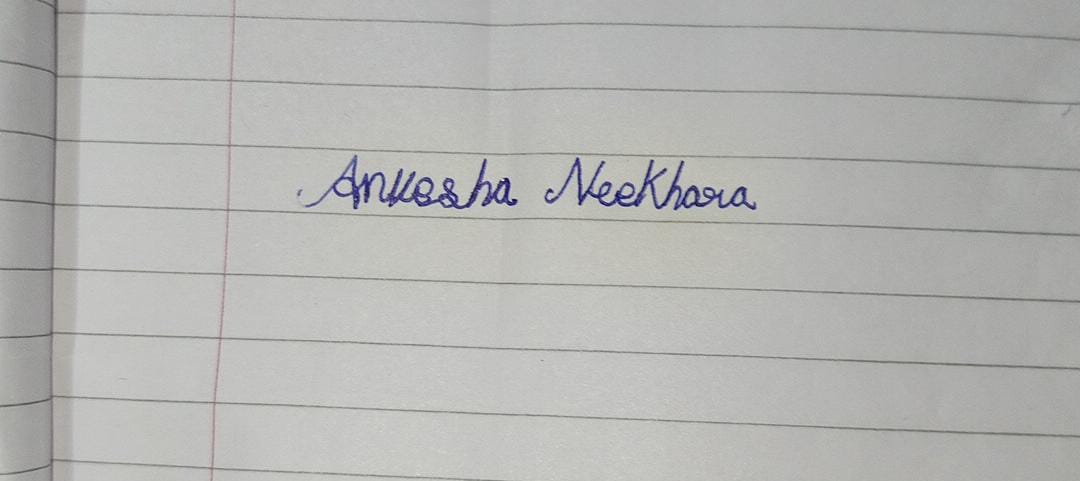 Ankesha Neekhara